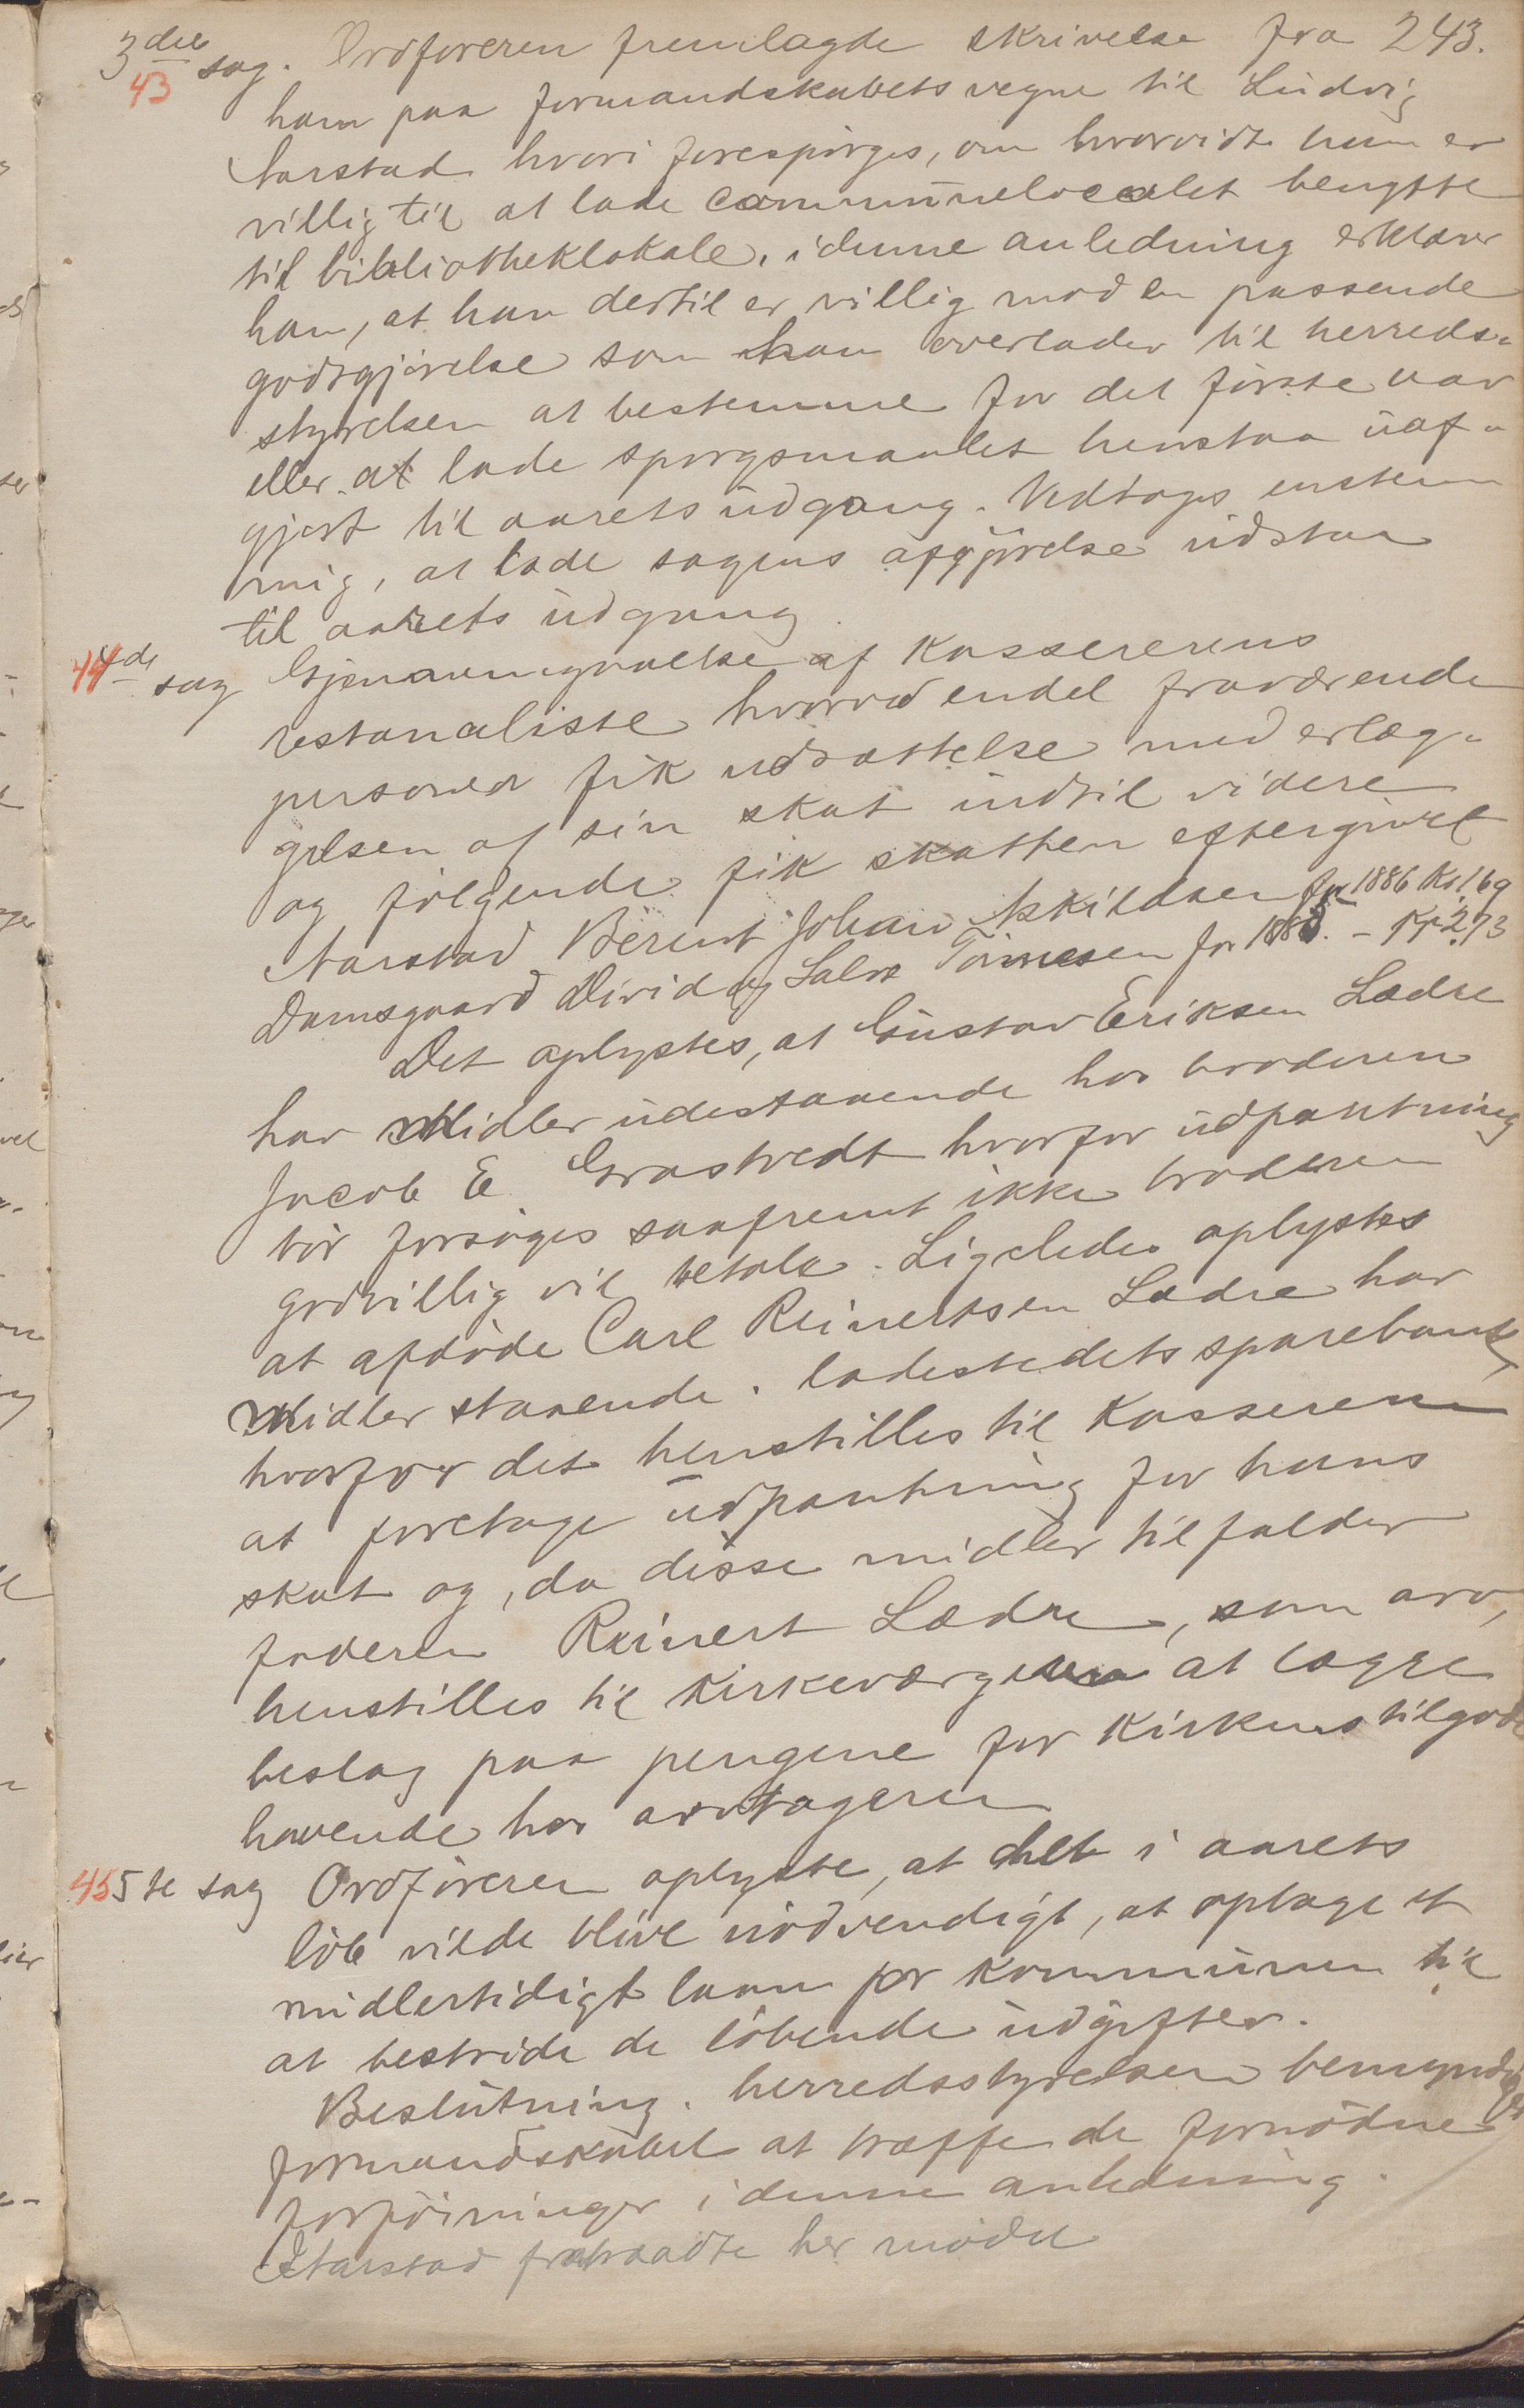 243.
3die sag. Ordføreren fremlagde skrivelse fra
43
ham paa formandskabets vegne til Ludvig
Aarstad hvori forespørges, om hvorvidt han er
villig til at lade communelocalet benytte
til bibliotheklokale, i denne anledning erklærer
han, at han dertil er villig mod en passende
godtgjørelse som han overlader til herreds-
styrelsen at bestemme for det første aar
eller at lade spørgsmaalet henstaa uaf-
gjort til aarets udgang. Vedtoges enstem
mig, at lade sagens afgjørelse udstaa
til aarets udgang.
44 4de sag Gjennemgaaelse af Kassererens
restanseliste hvorved endel fraværende
personer fik udsættelse med erlæg-
gelsen af sin skat indtil videre
og følgende fik skatten eftergivet
Aarstad Berent Johan Askildsen for 1886 Kr. 1 69
Damsgaard Divid og Salve Tønnesen for 1885. - Kr 2,73
Det oplystes, at Gustav Eriksen Lædre
har Midler udestaaende hos broderen
Jacob E Grastvedt hvorfor udpantning
bør forsøges saafremt ikke broderen
godvillig vil betale. Ligeledes oplystes
at afdøde Carl Reinertsen Lædre har
Midler staaende i ladestedets sparebank,
hvorfor det henstilles til Kassereren
at foretage udpantning for hans
skat og, da disse midler tilfalder
faderen Reinert Lædre, som arv,
henstilles til Kirkeværgen at lægge
beslag paa pengene for Kirkens tilgode
havende hos arvtageren
45 5te sag Ordføreren oplyste, at det i aarets
løb vilde blive nødvendigt, at optage et
midlertidigt laan for Kommunen til
at bestride de løbende udgifter.
Beslutning. herredsstyrelsen bemyndiger
formandskabet at træffe de fornødne
forføininger i denne anledning.
Aarstad fratraadte her mødet